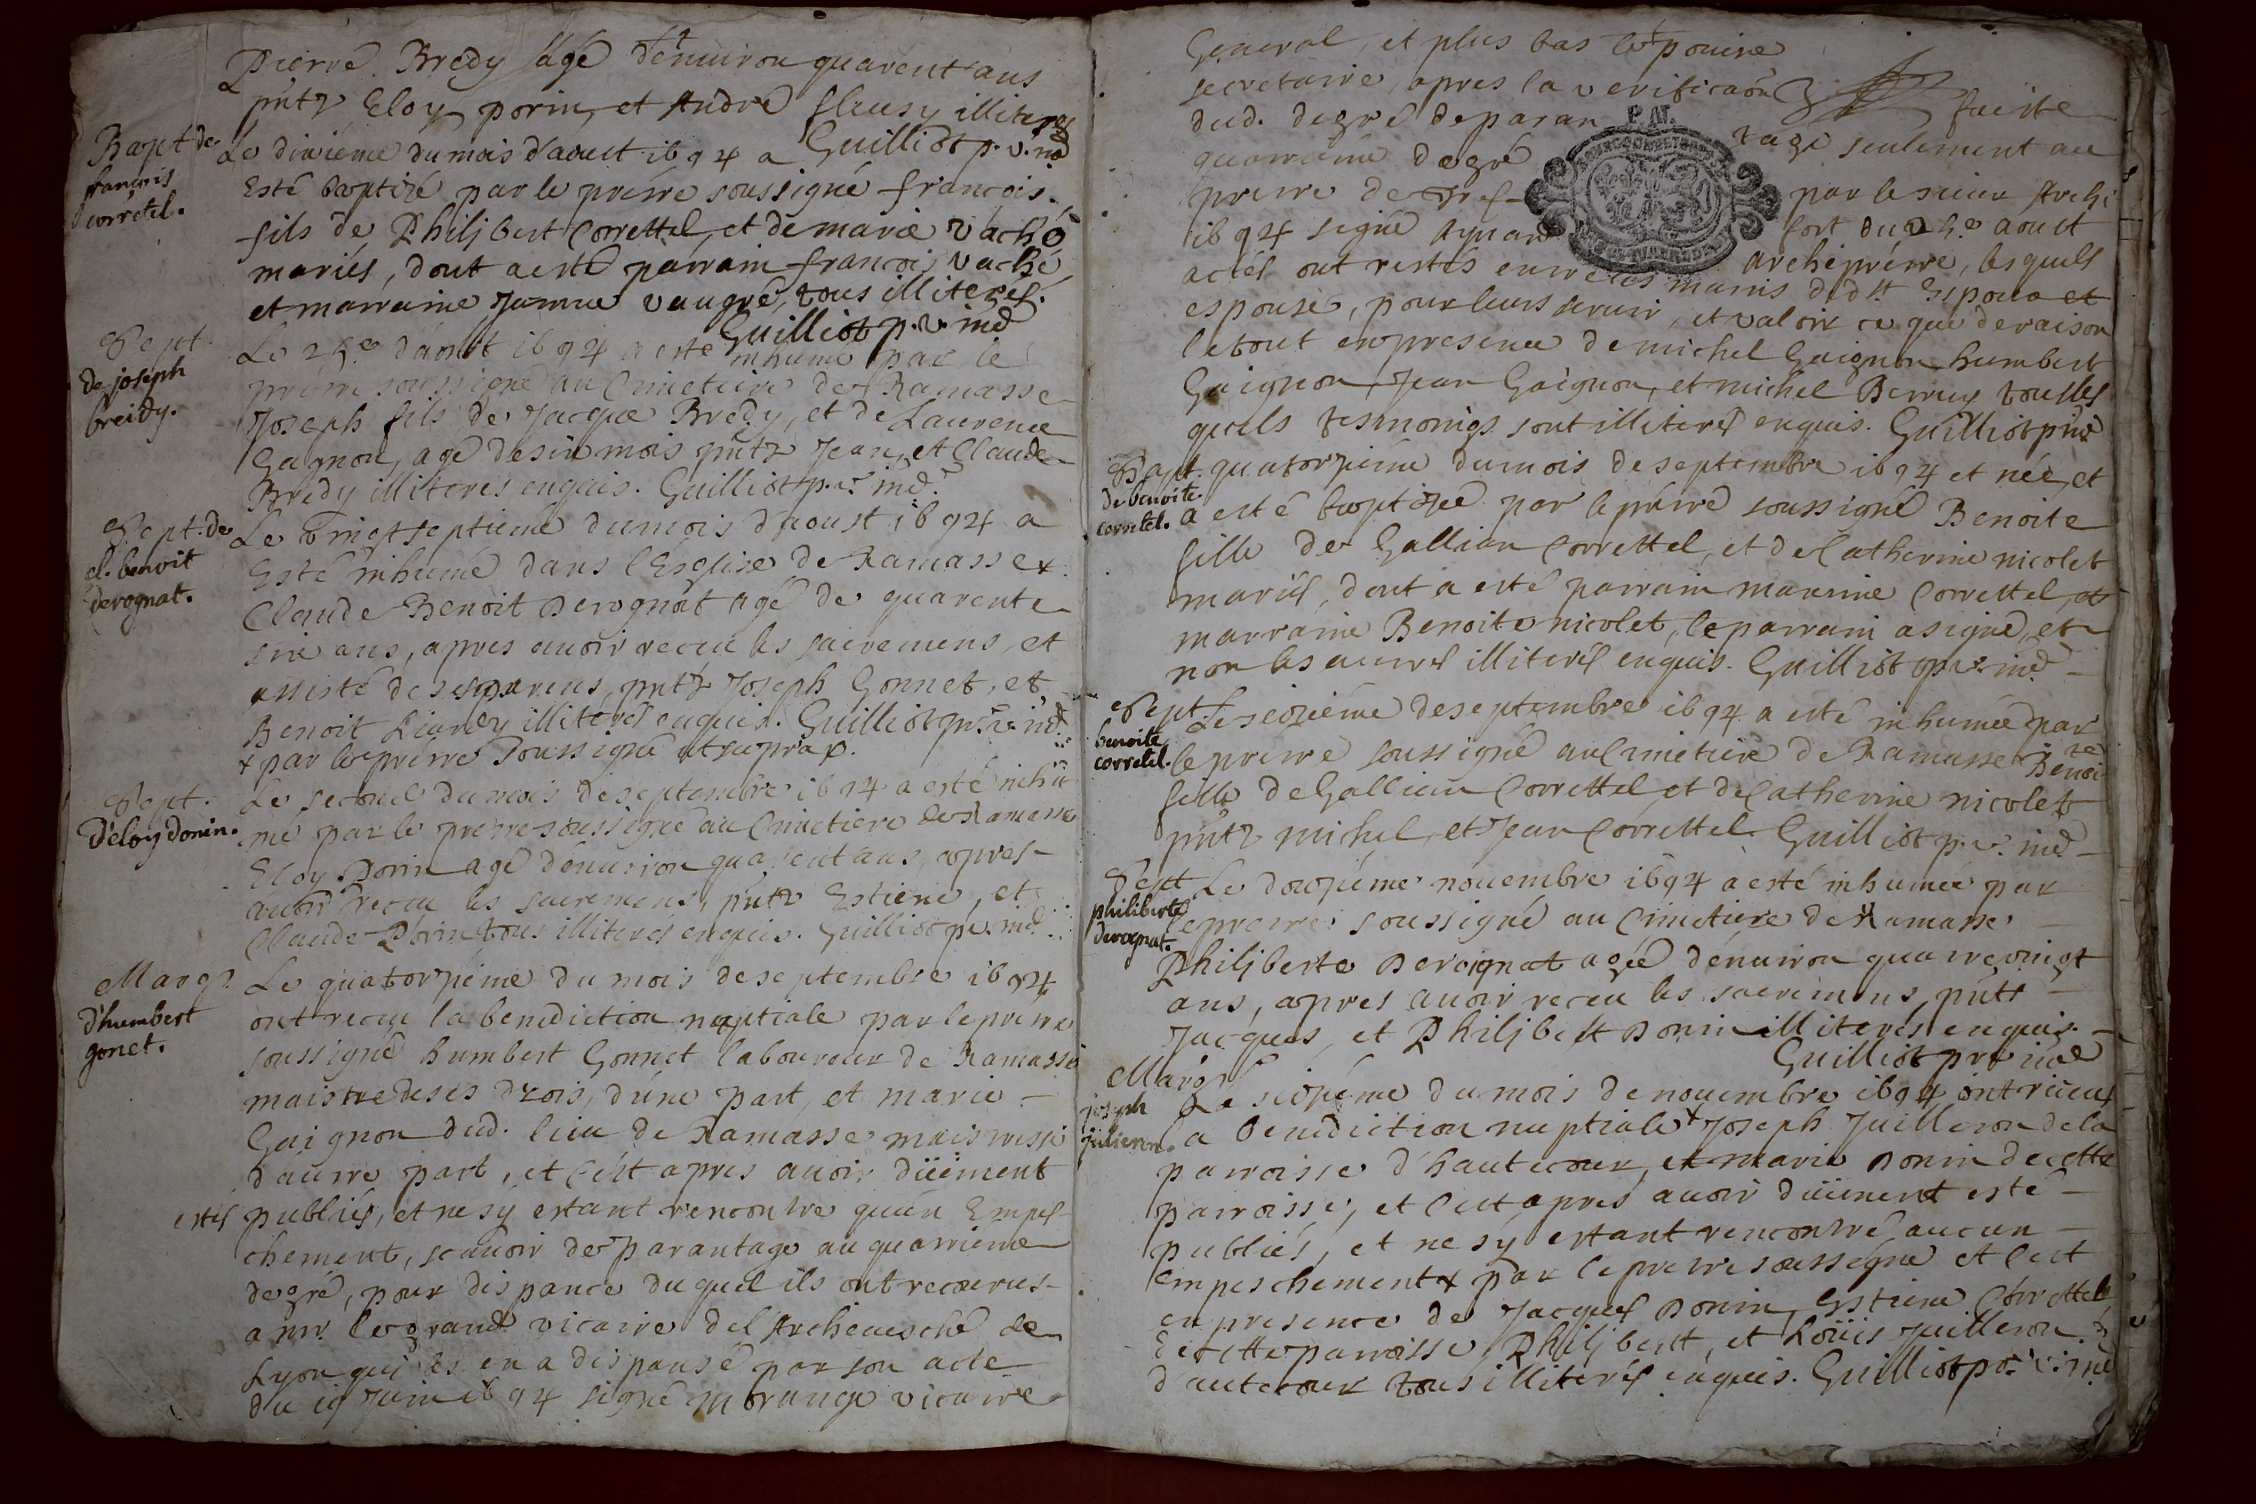 Pierre Bredy agé d'enuiron quarent ans
pntz Eloy porin, et André fleusy illiteres
Guilliot p. v. ind
Bapt de
françois
correttel.
Le dixiéme du mois d'aoust 1694 a
Esté baptizé par le prétre soussigné françois
fils de Philjbert Correttel, et de marie vaché
mariés, dont a esté parrain françois vaché
et marraine Jeanne vaugré, tous illiterés.
Guilliot p. v. ind
Sept
de joseph
breidy.
Le 25.e d'aoust 1694 a esté inhumé par le
prétre soussigné au Cimetiere de Ramasse
Joseph fils de Jacque Bredy, et de Laurence
Gagnon, agé de six mois pntz Jean, et Claude
Bredy illiterés enquis. Guilliot p. v. ind.
Sept. de
cl. benoit
derognat.
Le vingt septiéme du mois d'aoust 1694 a
Esté inhumé dans l'Esglise de Ramasse x
Claude Benoit Derognat agé de quarente
six ans, apres auoir receu les sacremens, et
assisté de ses parens, pntz Joseph Gonnet, et
Benoit Liandy illiterés enquis. Guilliot p. v. ind.
x par le prétre soussigné ut supra p.
Sept.
d'eloy donin.
Le second du mois de septembre 1694 a esté inhu
mé par le prétre soussigné au Cimetiere de Ramasse
Eloy Donin agé d'enuiron quarent ans, apres
auoir receu les sacremens, pntz Estiene, et
Claude Donin tous illiterés enquis. Guilliot p. v. ind.
Marg
d'humbert
gonet.
Le quatorziéme du mois de septembre 1694
ont receu la benediction nuptiale par le pretre
soussigné humbert Gonnet laboureur de Ramasse
maistre de ses drois, d'une part, et marie
Gaignon dud. lieu de Ramasse maistresse
d'autre part, et C'est apres auoir düement
estés publiés, et ne s'y estant rencontre qu'un Empes
chement, scauoir de Parantage au quatrieme
degré, pour dispance duquel ils ont recourus
a mr. le grand vicaire del'Archeuesché de
Lyon qui les en a dispansé par son acte
du 19 Juin 1694 signé morange vicaire
General, et plus bas
secretaire, apres la verification faitte
dud. degré de paran tage seulement au
quatrieme degré par le sieur Archi
prétre de Tref fort du 25.e aoust
1694 signé archiprétre, lesquels
actes ont restés entre les mains dud.t Espoux et
espouse, pour leurs seruir, et valoir ce que de raison
le tout en presence de michel Gaignon, humbert
Gaignon, Jean Gaignon, et michel Perruy tous les
quels tesmoings sont illiterés enquis. Guilliot p. v. ind
Bapt.
de benoite
corretel.
quatorziéme du mois de septembre 1694 et née, et
a esté baptizée par le prétre soussigné Benoite
fille de Gallian Correttel, et de Catherine nicolet
mariés, dont a esté parrain maurine Correttel, et
marraine Benoite nicolet, le parrain a signé, et
non les autres illiterés enquis. Guilliot p. v. ind.
Sept.
benoite
corretel.
Le seiziéme de septembre 1694 a esté inhumée par
le prétre soussigné au Cimetiere de Ramasse Benoite
fille de Gallian Correttel et de Catherine nicolet
pntz michel, et Jean Correttel. Guilliot p. v. ind.
Sept
philiberte
derognat.
Le douziéme nouembre 1694 a esté inhumée par
le prétre soussigné au Cimetiere de Ramasse
Philjberte Derognat agée d'enuiron quatre vingt
ans, apres auoir receu les sacremens, pntz
Jacques, et Philjbert Donin illiterés enquis.
Guilliot p. v. ind
Marg
joseph
juilleron.
Le seiziéme du mois de nouembre 1694 ont receu
la benediction nuptiale x Joseph Juilleron de la
parroisse d'hautecour, et marie Donin de cette
parroisse, et C'est apres auoir düement esté
publiés, et ne s'y estant rencontré aucun
empeschement x par le pretre soussigné et C'est
en presence de Jacques Donin, Estiene Correttel
de cette parroisse, Philjbert, et Loüis Juilleron
d'autecour tous illiterés enquis. Guilliot p. v. ind